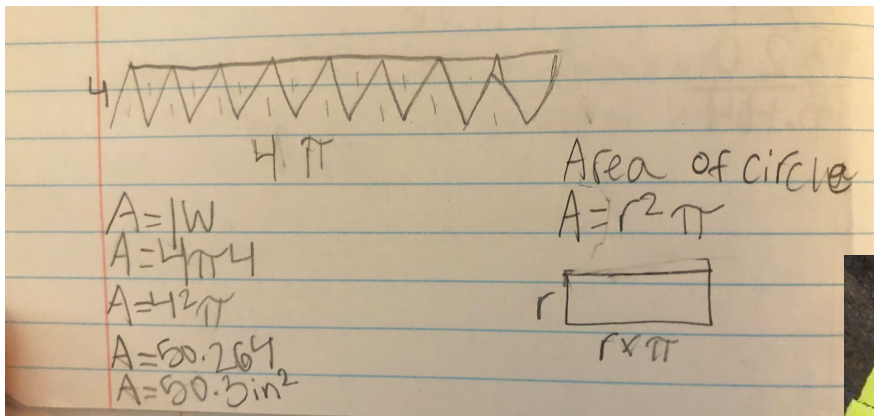 4
4 π
A=lw
A=4π4
A=4²π
A=50.264
A=50.3in²
Area of circle
A=r²π
r
r×π